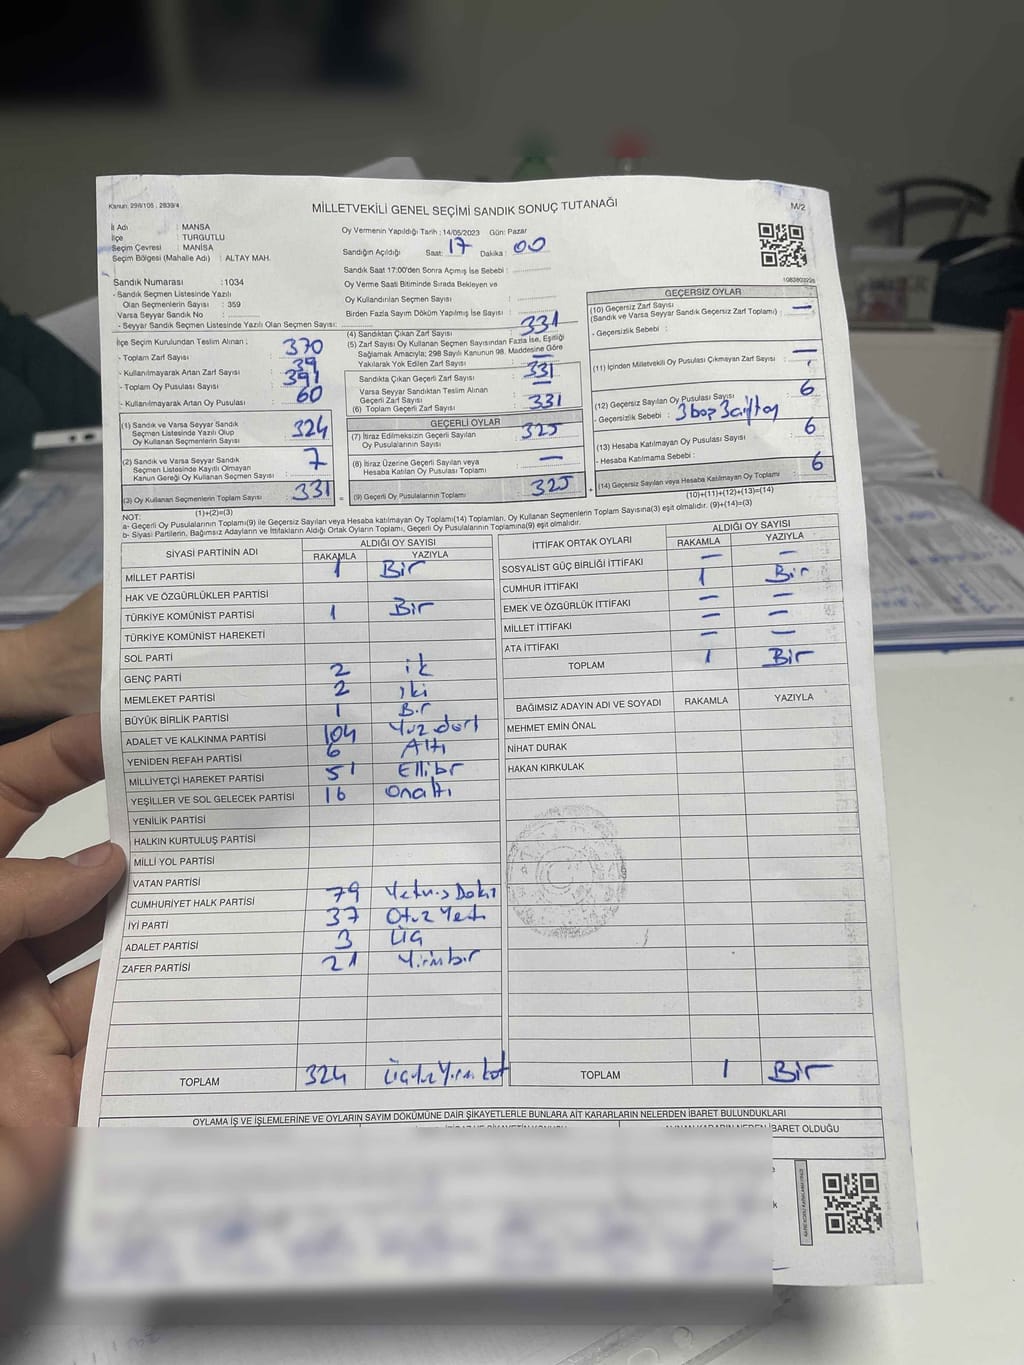 Kanun: 298/105 , 2839/4
MİLLETVEKİLİ GENEL SEÇİMİ SANDIK SONUÇ TUTANAĞI
M/2
İl Adı : MANSA
İlçe : TURGUTLU
Seçim Çevresi : MANİSA
Seçim Bölgesi (Mahalle Adı) : ALTAY MAH.
Oy Vermenin Yapıldığı Tarih : 14/05/2023 Gün: Pazar
Sandığın Açıldığı Saat: 17 Dakika : 00
Sandık Saat 17:00'den Sonra Açımış İse Sebebi :
Oy Verme Saati Bitiminde Sırada Bekleyen ve
Oy Kullandırılan Seçmen Sayısı :
Birden Fazla Sayım Döküm Yapılmış İse Sayısı :
Sandık Numarası : 1034
- Sandık Seçmen Listesinde Yazılı
Olan Seçmenlerin Sayısı : 359
Varsa Seyyar Sandık No :
- Seyyar Sandık Seçmen Listesinde Yazılı Olan Seçmen Sayısı:
İlçe Seçim Kurulundan Teslim Alınan ;
- Toplam Zarf Sayısı : 370
- Kullanılmayarak Artan Zarf Sayısı : 39
- Toplam Oy Pusulası Sayısı : 391
- Kullanılmayarak Artan Oy Pusulası : 60
(1) Sandık ve Varsa Seyyar Sandık
Seçmen Listesinde Yazılı Olup
Oy Kullanan Seçmenlerin Sayısı : 324
(2) Sandık ve Varsa Seyyar Sandık
Seçmen Listesinde Kayıtlı Olmayan
Kanun Gereği Oy Kullanan Seçmen Sayısı : 7
(3) Oy Kullanan Seçmenlerin Toplam Sayısı : 331
(1)+(2)=(3)
(4) Sandıktan Çıkan Zarf Sayısı : 331
(5) Zarf Sayısı Oy Kullanan Seçmen Sayısından Fazla İse, Eşitliği
Sağlamak Amacıyla; 298 Sayılı Kanunun 98. Maddesine Göre
Yakılarak Yok Edilen Zarf Sayısı : —
Sandıkta Çıkan Geçerli Zarf Sayısı : 331
Varsa Seyyar Sandıktan Teslim Alınan
Geçerli Zarf Sayısı : —
(6) Toplam Geçerli Zarf Sayısı : 331
GEÇERLİ OYLAR
(7) İtiraz Edilmeksizin Geçerli Sayılan
Oy Pusulalarının Sayısı : 325
(8) İtiraz Üzerine Geçerli Sayılan veya
Hesaba Katılan Oy Pusulası Toplamı : —
(9) Geçerli Oy Pusulalarının Toplamı : 325
1083803226
GEÇERSİZ OYLAR
(10) Geçersiz Zarf Sayısı
(Sandık ve Varsa Seyyar Sandık Geçersiz Zarf Toplamı) : —
- Geçersizlik Sebebi :
(11) İçinden Milletvekili Oy Pusulası Çıkmayan Zarf Sayısı : —
(12) Geçersiz Sayılan Oy Pusulası Sayısı : 6
- Geçersizlik Sebebi : 3 boş 3
(13) Hesaba Katılmayan Oy Pusulası Sayısı : 6
- Hesaba Katılmama Sebebi :
(14) Geçersiz Sayılan veya Hesaba Katılmayan Oy Toplamı : 6
(10)+(11)+(12)+(13)=(14)
NOT:
a- Geçerli Oy Pusulalarının Toplamı(9) ile Geçersiz Sayılan veya Hesaba katılmayan Oy Toplamı(14) Toplamları, Oy Kullanan Seçmenlerin Toplam Sayısına(3) eşit olmalıdır. (9)+(14)=(3)
b- Siyasi Partilerin, Bağımsız Adayların ve İttifakların Aldığı Ortak Oyların Toplamı, Geçerli Oy Pusulalarının Toplamına(9) eşit olmalıdır.
SİYASİ PARTİNİN ADI ALDIĞI OY SAYISI
RAKAMLA YAZIYLA
MİLLET PARTİSİ 1 Bir
HAK VE ÖZGÜRLÜKLER PARTİSİ
TÜRKİYE KOMÜNİST PARTİSİ 1 Bir
TÜRKİYE KOMÜNİST HAREKETİ
SOL PARTİ
GENÇ PARTİ 2 ik
MEMLEKET PARTİSİ 2 iki
BÜYÜK BİRLİK PARTİSİ 1 Bir
ADALET VE KALKINMA PARTİSİ 104 Yüz dört
YENİDEN REFAH PARTİSİ 6 Altı
MİLLİYETÇİ HAREKET PARTİSİ 51 Ellibr
YEŞİLLER VE SOL GELECEK PARTİSİ 16 onaltı
YENİLİK PARTİSİ
HALKIN KURTULUŞ PARTİSİ
MİLLİ YOL PARTİSİ
VATAN PARTİSİ
CUMHURİYET HALK PARTİSİ 79 Yetmiş Dokuz
İYİ PARTİ 37 Otuz Yedi
ADALET PARTİSİ 3 Üç
ZAFER PARTİSİ 21 Yirmibir
TOPLAM 324
İTTİFAK ORTAK OYLARI ALDIĞI OY SAYISI
RAKAMLA YAZIYLA
SOSYALİST GÜÇ BİRLİĞİ İTTİFAKI — —
CUMHUR İTTİFAKI 1 Bir
EMEK VE ÖZGÜRLÜK İTTİFAKI — —
MİLLET İTTİFAKI — —
ATA İTTİFAKI — —
TOPLAM 1 Bir
BAĞIMSIZ ADAYIN ADI VE SOYADI RAKAMLA YAZIYLA
MEHMET EMİN ÖNAL
NİHAT DURAK
HAKAN KIRKULAK
TOPLAM 1 Bir
OYLAMA İŞ VE İŞLEMLERİNE VE OYLARIN SAYIM DÖKÜMÜNE DAİR ŞİKAYETLERLE BUNLARA AİT KARARLARIN NELERDEN İBARET BULUNDUKLARI
İBARET OLDUĞU